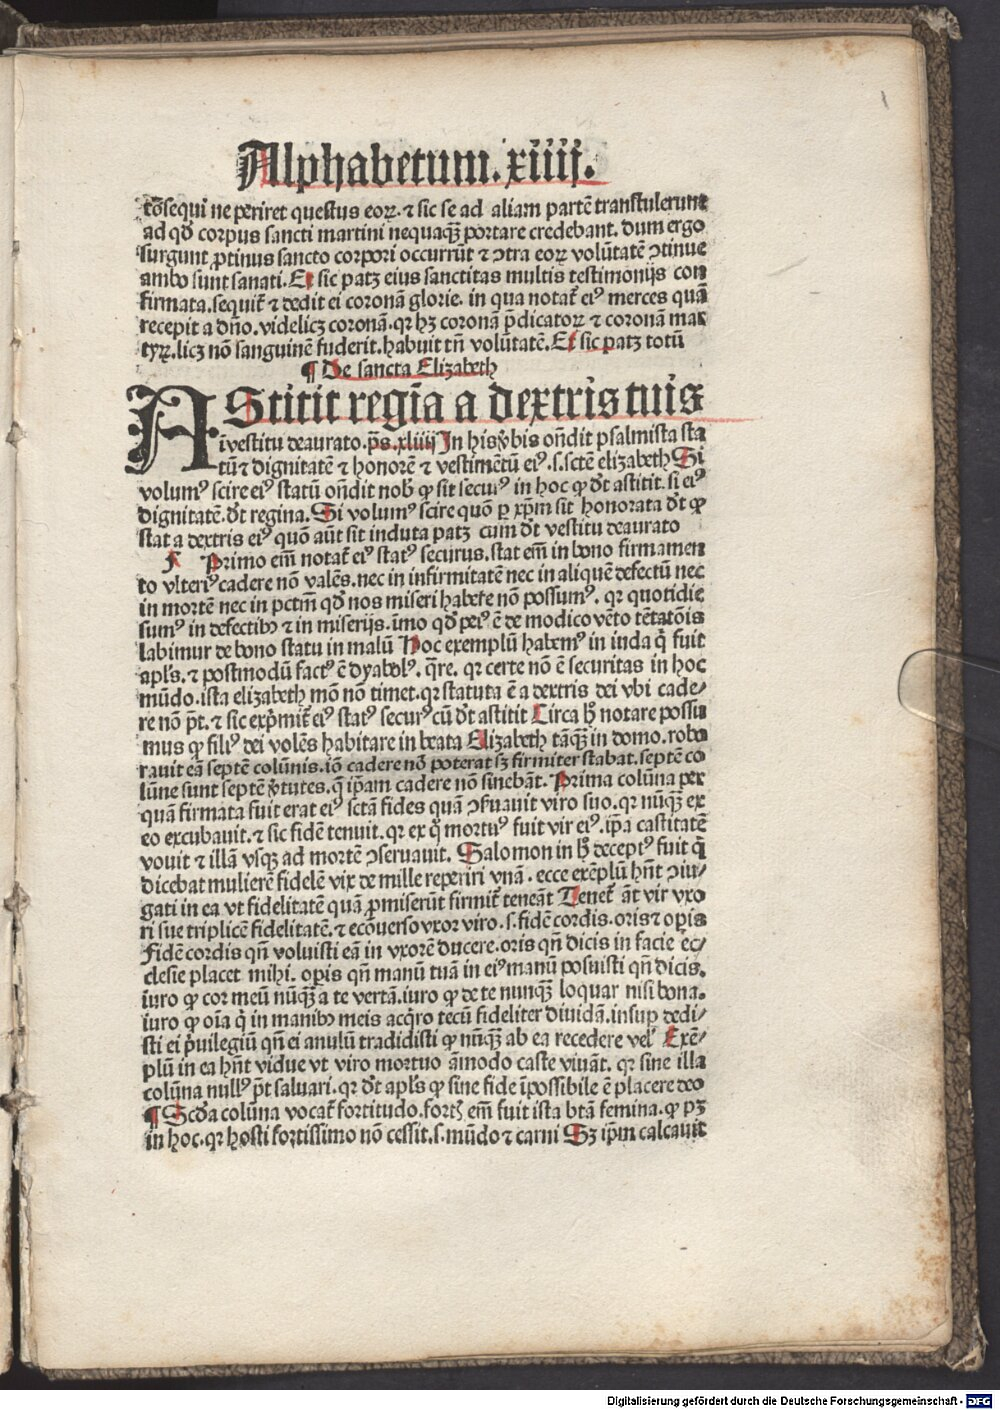 Alphabetum. xiiij.
cõsequi ne periret questus eoꝝ. ⁊ sic se ad aliam partẽ transtulerunt
ad qđ corpus sancti martini nequaqꝫ portare credebant. dum ergo
surgunt ꝓtinus sancto corpori occurrũt ⁊ ↄtra eoꝝ volũtatẽ ↄtinue
ambo sunt sanati. Et sic patꝫ eius sanctitas multis testimonijs con
firmata. sequit̃ ⁊ dedit ei coronã glorie. in qua notat̃ eiꝰ merces quã
recepit a dño. videlicꝫ coronã. qꝛ hꝫ coronã p̃dicatoꝝ ⁊ coronã mar
tyꝝ. licꝫ nõ sanguinẽ fuderit. habuit tñ volũtatẽ. Et sic patꝫ totũ
¶ De sancta Elizabeth
AStitit regĩa a dextris tuis
ĩ vestitu deaurato. p̃s. xliiij In his v̾bis oñdit psalmista sta
tũ ⁊ dignitatẽ ⁊ honorẽ ⁊ vestimẽtũ eiꝰ. s. sctẽ elizabeth Si
volumꝰ scire eiꝰ statũ oñdit nob̾ ꝙ sit securꝰ in hoc ꝙ dt̃ astitit. si eiꝰ
dignitatẽ. dt̃ regina. Si volumꝰ scire quõ ꝑ xp̃m sit honorata dt̃ ꝙ
stat a dextris eiꝰ quõ aũt sit induta patꝫ cum dt̃ vestitu deaurato
¶ Primo em̃ notat̃ eiꝰ statꝰ securus. stat em̃ in bono firmamen
to vlteriꝰ cadere nõ valẽs. nec in infirmitatẽ nec in aliquẽ defectũ nec
in mortẽ nec in pctm̃ qđ nos miseri habere nõ possumꝰ. qꝛ quotidie
sumꝰ in defectibꝰ ⁊ in miserijs. ĩmo qđ peiꝰ ẽ de modico vẽto tẽtatõis
labimur de bono statu in malũ Hoc exemplũ habemꝰ in iuda q̃ fuit
apl̃s. ⁊ postmodũ factꝰ ẽ dyabolꝰ. q̃re. qꝛ certe nõ ẽ securitas in hoc
mũdo. ista elizabeth mõ nõ timet. qꝛ statuta ẽ a dextris dei vbi cade/
re nõ p̃t. ⁊ sic exp̃mit̃ eiꝰ statꝰ securꝰ cũ dt̃ astitit Circa h̾ notare possu
mus ꝙ filiꝰ dei volẽs habitare in beata Elizabeth tãqꝫ in domo. robo
rauit eã septẽ colũnis. iõ cadere nõ poterat sꝫ firmiter stabat. septẽ co
lũne sunt septẽ v̾tutes. q̃ ip̃am cadere nõ sinebãt. Prima colũna per
quã firmata fuit erat eiꝰ sctã fides quã ↄẽruauit viro suo. qꝛ nũqꝫ ex
eo excubauit. ⁊ sic fidẽ tenuit. qꝛ ex q̃ mortuꝰ fuit vir eiꝰ. ip̃a castitatẽ
vouit ⁊ illã vsqꝫ ad mortẽ ↄseruauit. Salomon in h̾ deceptꝰ fuit q̃
dicebat mulierẽ fidelẽ vix de mille reperiri vnã. ecce exẽplũ hñt ↄiu/
gati in ea vt fidelitatẽ quã ꝓmiserũt firmit̃ teneãt Tenet̃ aũt vir vxo
ri sue triplicẽ fidelitatẽ. ⁊ ecõuerso vxor viro. s. fidẽ cordis. oris ⁊ oꝑis
Fidẽ cordis qñ voluisti eã in vxorẽ ducere. oris qñ dicis in facie ec/
clesie placet mihi. oꝑis qñ manũ tuã in eiꝰ manũ posuisti qñ dicis.
iuro ꝙ cor meũ nũqꝫ a te vertã. iuro ꝙ de te nunqꝫ loquar nisi bona.
iuro ꝙ oĩa q̃ in manibꝰ meis acq̃ro tecũ fideliter diuidã. insuꝑ dedi/
sti ei p̃uilegiũ qñ ei anulũ tradidisti ꝙ nũqꝫ ab ea recedere vel̾ Exẽ/
plũ in ea hñt vidue vt viro mortuo ãmodo caste viuãt. qꝛ sine illa
colũna nullꝰ p̃t saluari. qꝛ dt̃ apl̃s ꝙ sine fide ĩpossibile ẽ placere deo
¶ Scđa colũna vocat̃ fortitudo. fortꝭ em̃ fuit ista btã femina. ꝙ pꝫ
in hoc. qꝛ hosti fortissimo nõ cessit. s. mũdo ⁊ carni Sꝫ ip̃m calcauit
Digitalisierung gefördert durch die Deutsche Forschungsgemeinschaft - DFG